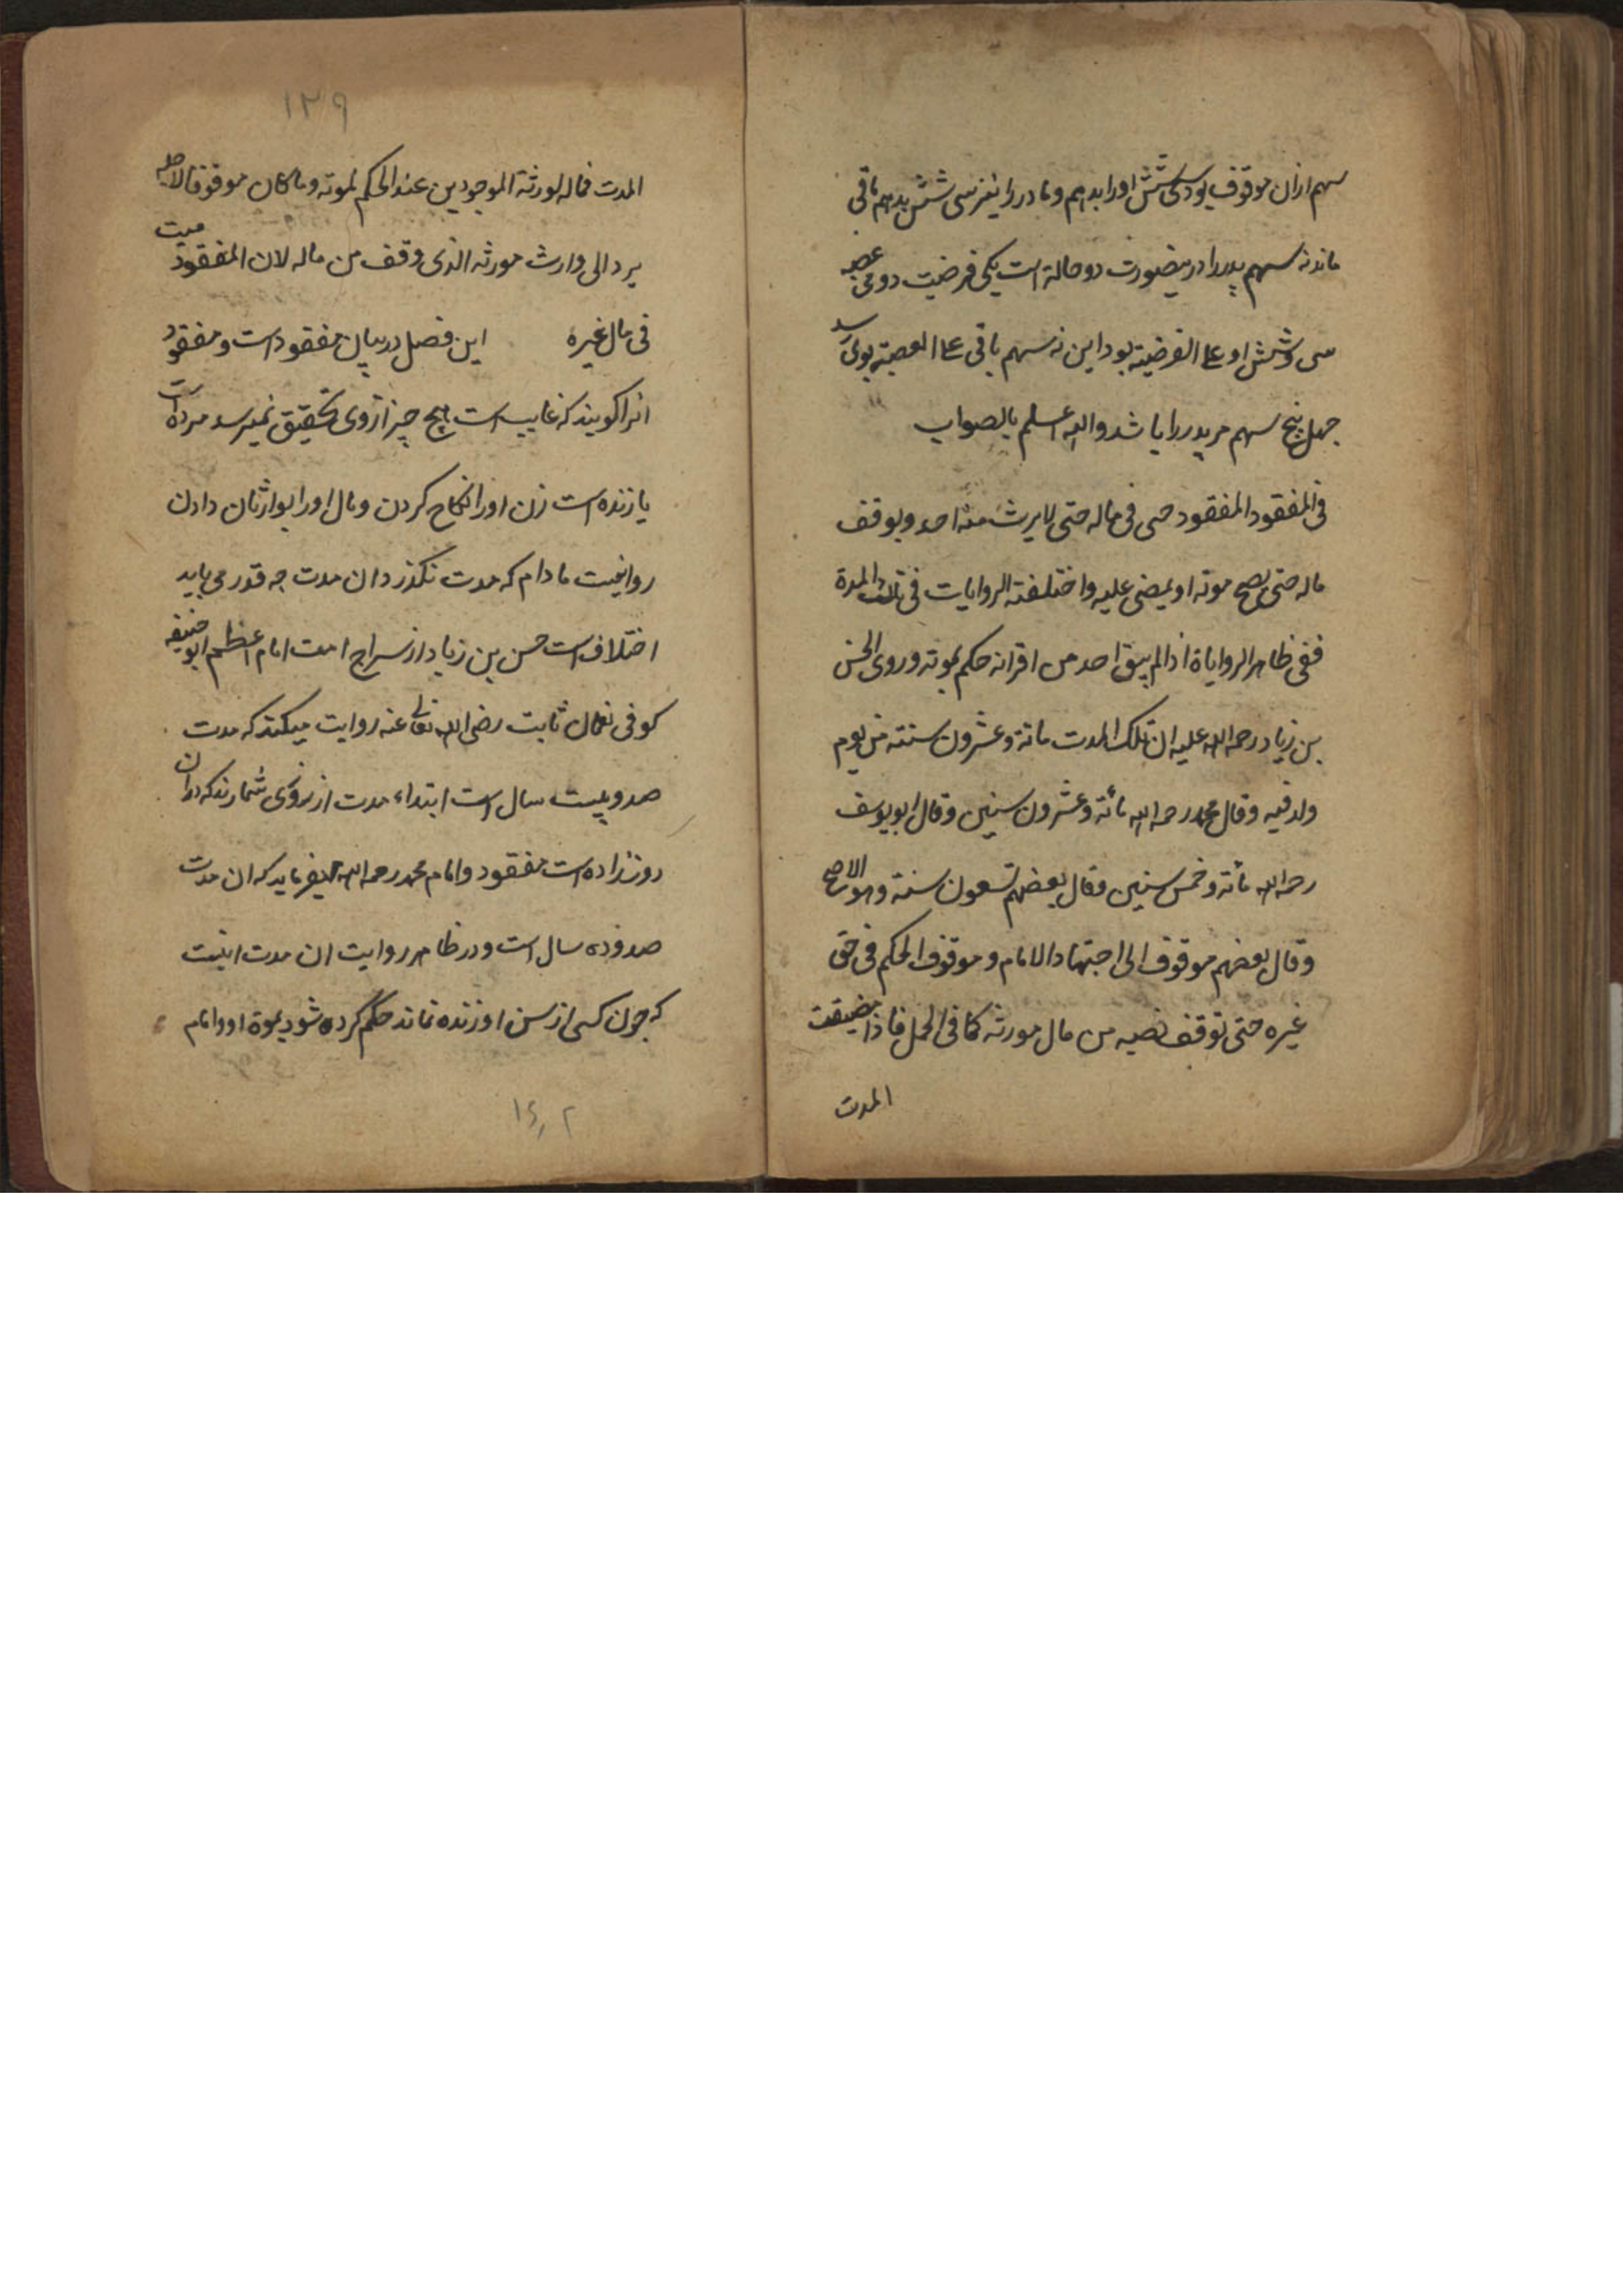 سهم ازان موقوف بود سی شش اورا بدهیم و مادر را نیز سی شش بدهیم باقی
ماند نه سهم پدر را درینصورت دو حالة است یکی فرضیت دومی عصبه
سی وشش او علی الفرضیته بود این نه سهم باقی علی العصبته بوی رسد
جهل پنج سهم مر پدر را باشد والله اعلم بالصواب
فی المفقود المفقود حی فی ماله حتی لا یرث منه احد ویوقف
ماله حتی یصح موته او یمضی علیه واختلفته الروایات فی تلک المدة
ففی ظاهر الروایاة اذا لم یبق احد من اقرانه حکم بموته وروی الحسن
بن زیاد رحمة الله علیه ان تلک المدت مائة وعشرون سنته من یوم
ولد فیه وقال محمد رحمه الله مائة وعشرون سنین وقال ابو یوسف
رحمه الله مائة وخمس سنین وقال بعضهم تسعون سنة وهو الاصح
وقال بعضهم موقوف الی اجتهاد الامام و موقوف الحکم فی حق
غیره حتی توقف نصیبه من مال مورثه کما فی الحمل فاذا مضیقت
المدت
۱۳۹
المدت فماله لورثة الموجودین عند الحکم لموته وماکان موقوفا لاجله
یرد الی وارث مورثه الذی وقف من ماله لان المفقود میت
فی مال غیره این فصل در بیان مفقود است و مفقود
انرا کویند که غایب است هیچ چیز از وی تحقیق نمیرسد مرده است
یا زنده است زن اورا نکاح کردن ومال اورا بوارثان دادن
روا نیست مادام که مدت نکذرد ان مدت جه قدر می باید
اختلاف است حسن بن زیاد از سراج امت امام اعظم ابو حنیفه
کوفی نعمان ثابت رضی الله تعالی عنه روایت میکند که مدت
صد وبیست سال است ابتداء مدت از نروزی شمارند که دران
روز زاده است مفقود وامام محمد رحمه الله میفرماید که ان مدت
صد وده سال است ودر ظاهر روایت ان مدت اینست
که جون کسی از سن او زنده نماند حکم کرده شود بموة او وامام